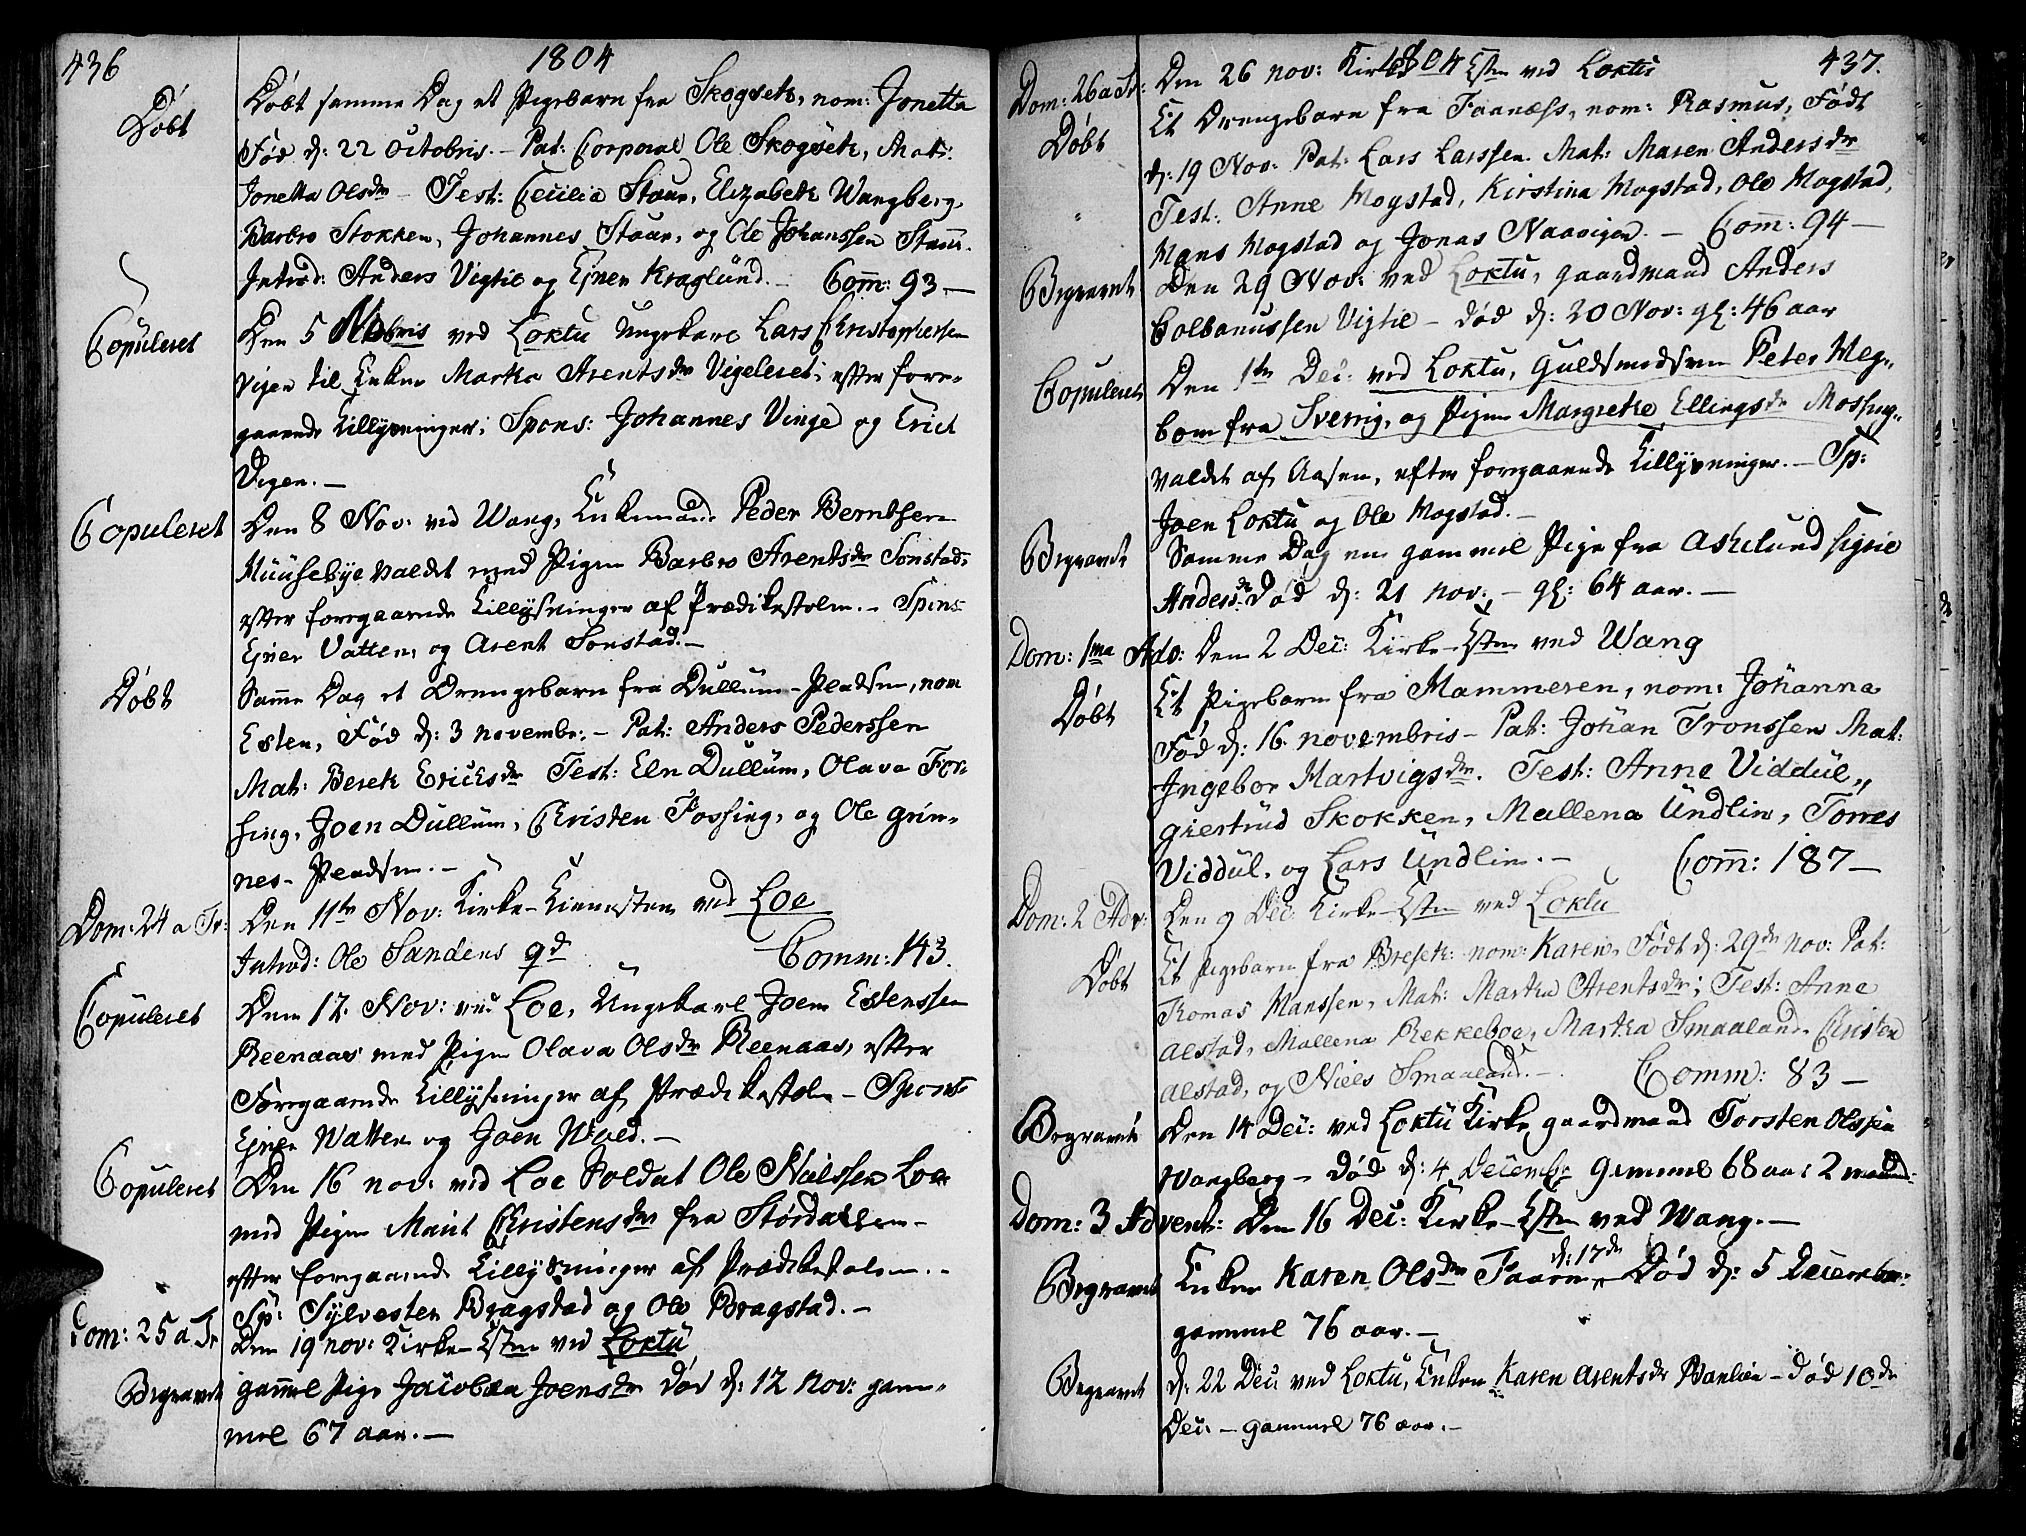 436
1804
Døbt
Døbt samme Dag et Pigebarn fra Skogseth, nom: Jonetta
Fød d: 22 Octobris. - Pat: Corporal Ole Skogseth, Mat:
Jonetta Olsdr - Test: Cecilia Staur, Elizabeth Wangberg,
Barbro Stokken, Johannes Staur, og Ole Johanssen Staur.
Introd: Anders Vigtil og Ejner Kraglund. - Com: 93 -
Copuleret
Den 5 Nobris ved Loktu Ungekarl Lars Christophersen
Vejen til Enken Martha Arentsdr Vigeleret; efter fore-
gaaende Lillysninger; Spons: Johannes Vinge og Erich
Vejen. -
Copuleret
Den 8 Nov: ved Wang, Enkemand Peder Berntsen
Muusebye valdet med Pigen Barbro Arentsdr Sonstad,
efter foregaaende Lillysninger af Prædikestolen. - Spons
Ejner Vatten, og Arent Sonstad. -
Døbt
Samme Dag et Drengebarn fra Dullum-Pladsen, nom
Esten, Fød d: 3 novembr: - Pat: Anders Pederssen
Mat: Bereth Ericksdr Test: Eln Dullum, Olava Fos-
sing, Joen Dullum, Christen Fossing, og Ole grin-
nes-Pladsen. -
Dom: 24 a Tr:
Den 11te Nov: Kirke-Tienesten ved Loe
Introd: Ole Sandens qd Comm: 143.
Copuleret
Den 12. Nov: ved Loe, Ungekarl Joen Estenssen
Reenaas med Pigen Olava Olsdr Reenaas, efter
Foregaaende Lillysninger af Prædikestolen - Spons
Ejner Watten og Joen Wold. -
Copuleret
Den 16 nov: ved Loe Soldat Ole Nielssen Loe
med Pigen Marit Christensdr fra Størdalen -
efter foregaaende Lillysninger af Prædikestolen. -
Sp: Sylvester Bragstad og Ole Bragstad. -
Dom: 25 a Tr
Den 19 nov: Kirke-Tsten ved Loktu
Begravet
gammel Pige Jacobæa Joensdr død d: 12 Nov: gam-
mel 67 aar. -
1804
437.
Dom: 26 a Tr:
Den 26 nov: Kirke Tsten ved Loktu
Døbt
Et Drengebarn fra Faanæss, nom: Rasmus, Født
d: 19 Nov: Pat: Lars Larssen Mat: Maren Andersdr
Test: Anne Mogstad, Kirstina Mogstad, Ole Mogstad,
Hans Mogstad og Jonas Naavigen. - Com: 94 -
Begravet
Den 29 Nov: ved Loktu, gaardmand Anders
Colbanussen Vigtil - død d: 20 Nov: gl: 46 aar
Copuleret
Den 1te Dec: ved Loktu, Guldsmedsven Peter Weg-
bom fra Sverrig, og Pigen Margrethe Ellingsdr Mossing-
valdet af Aasen, efter foregaaende Lillysninger. - Sp:
Joen Loktu og Ole Mogstad. -
Begravet
Samme Dag en gammel Pige fra Askelund Sigrie
Andersdr Død d: 21 nov: - gl: 64 aar. -
Dom: 1ma Adv:
Den 2 Dec: Kirke-Tsten ved Wang
Døbt
Et Pigebarn fra Hammeren, nom: Johanna
Fød d: 16. novembris - Pat: Johan Tronssen Mat:
Ingebor Hartvigsdr. Test: Anne Viddul,
giertrud Skokken, Mallena Undlin, Torres
Viddul, og Lars Undlin. - Com: 187 -
Dom: 2 Adv:
Den 9 Dec: Kirke-Tsten ved Loktu
Døbt
Et Pigebarn fra Breseth: nom: Karen, Født d: 29de nov: Pat:
Thomas Hanssen, Mat: Martha Arentsdr; Test: Anne
Alstad, Mallena Rekkeboe, Martha Smaaland, Christen
Alstad, og Niels Smaaland. - Comm: 83 -
Begravet
Den 14 Dec: ved Loktu Kirke gaardmand Torsten Olssen
Wangberg - Død d: 4 Decembr gammel 68 aar 2 maaned:
Dom: 3 Advent:
Den 16 Dec: Kirke-Tsten ved Wang. -
Begravet
d: 17de
Enken Karen Olsdr Død d: 5 December:
gammel 76 aar. -
Begravet
d: 22 Dec: ved Loktu, Enken Karen Arentsdr - død 10de
Dec: - gammel 76 aar. -